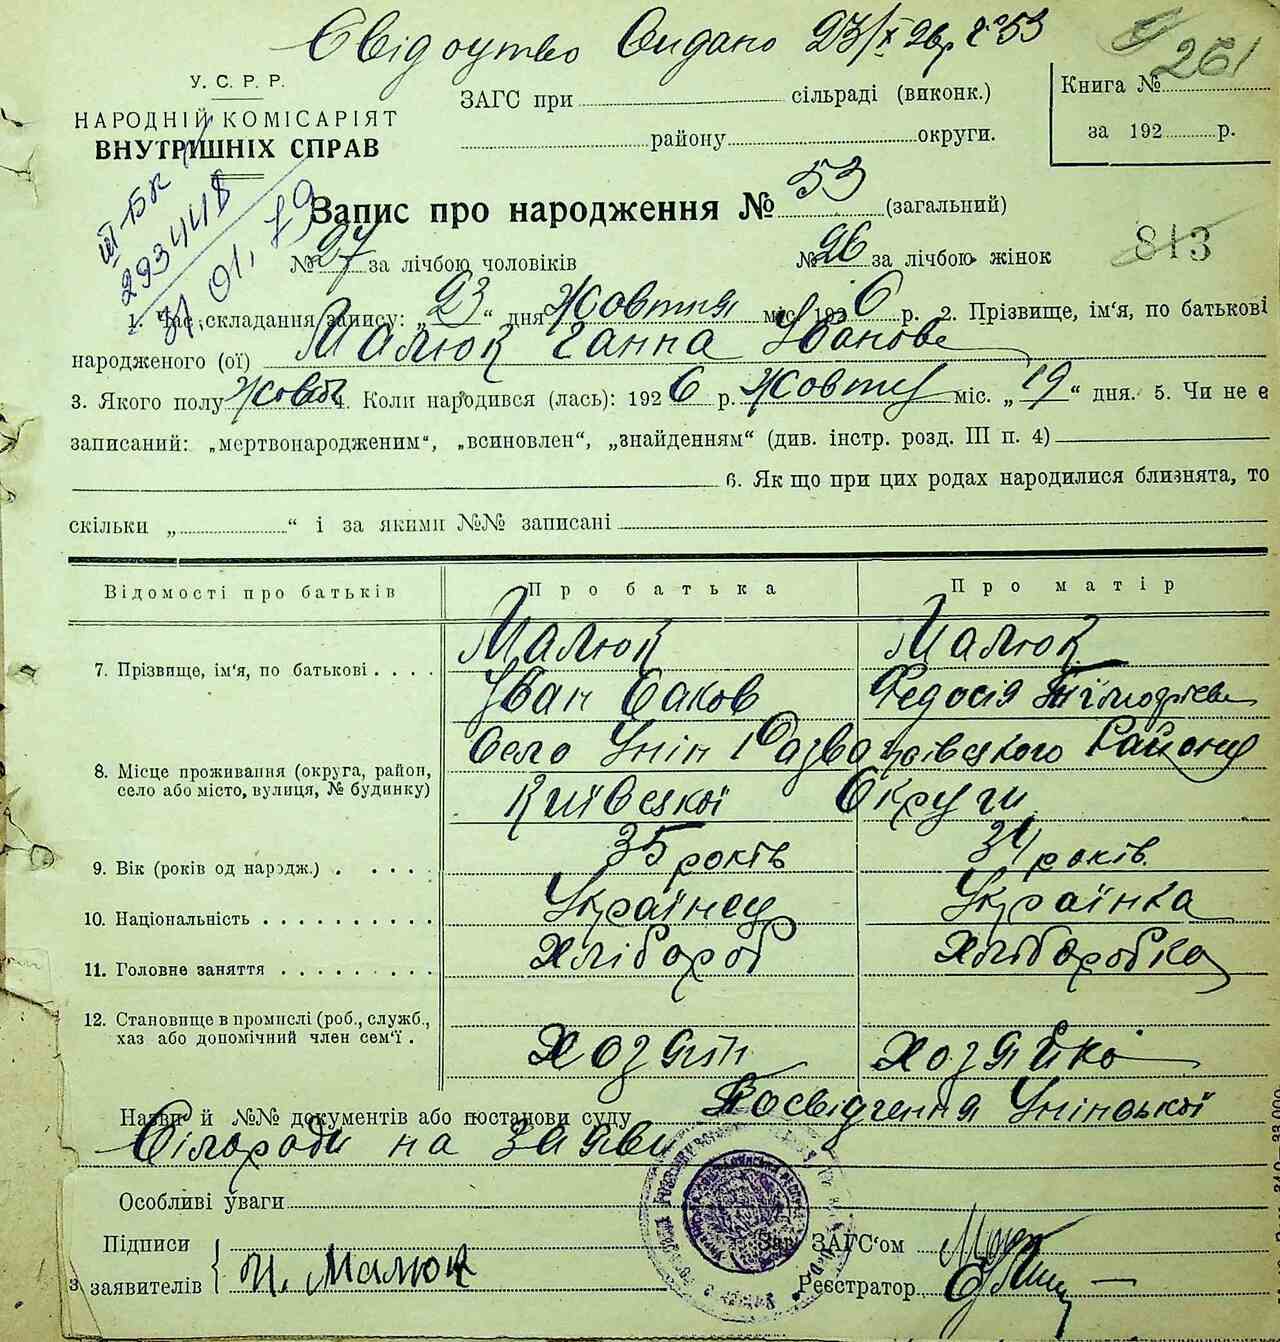 Свідоцтво видано 23/X 26р. № 53
261
У. С. Р. Р.
НАРОДНІЙ КОМІСАРІЯТ
ВНУТРІШНІХ СПРАВ
ЗАГС при сільраді (виконк.)
району округи.
Книга №
за 192 р.
III БК
293448
31. 01. 79
Запис про народження № 53 (загальний)
813
№ 27 за лічбою чоловіків № 26 за лічбою жінок
1. Час складання запису: „23“ дня Жовтня міс. 1926 р. 2. Прізвище, ім'я, по батькові
народженого (ої) Малюк Ганна Іванове
3. Якого полу 4. Коли народився (лась): 1926 р. Жовтня міс. „19“ дня. 5. Чи не є
записаний: „мертвонародженим“, „всиновлен“, „знайденням“ (див. інстр. розд. III п. 4)
6. Як що при цих родах народилися близнята, то
скільки „ “ і за якими №№ записані
Відомості про батьків Про батька Про матір
7. Прізвище, ім'я, по батькові Малюк Малюк
Іван Яков Федосія
8. Місце проживання (округа, район, село або місто, вулиця, № будинку) Село Унін Району
Київської Округи
9. Вік (років од народж.) 35 років 34 років
10. Національність Українец Українка
11. Головне заняття Хлібороб Хліборобка
12. Становище в промислі (роб., служб., хаз або допомічний член сем'ї Хозяїн Хозяйка
Назви й №№ документів або постанови суду Посвідчення Унінської
Сілради на заяви
Особливі уваги
Підписи
заявителів И. Малюк
Зав. ЗАГС'ом
Реєстратор